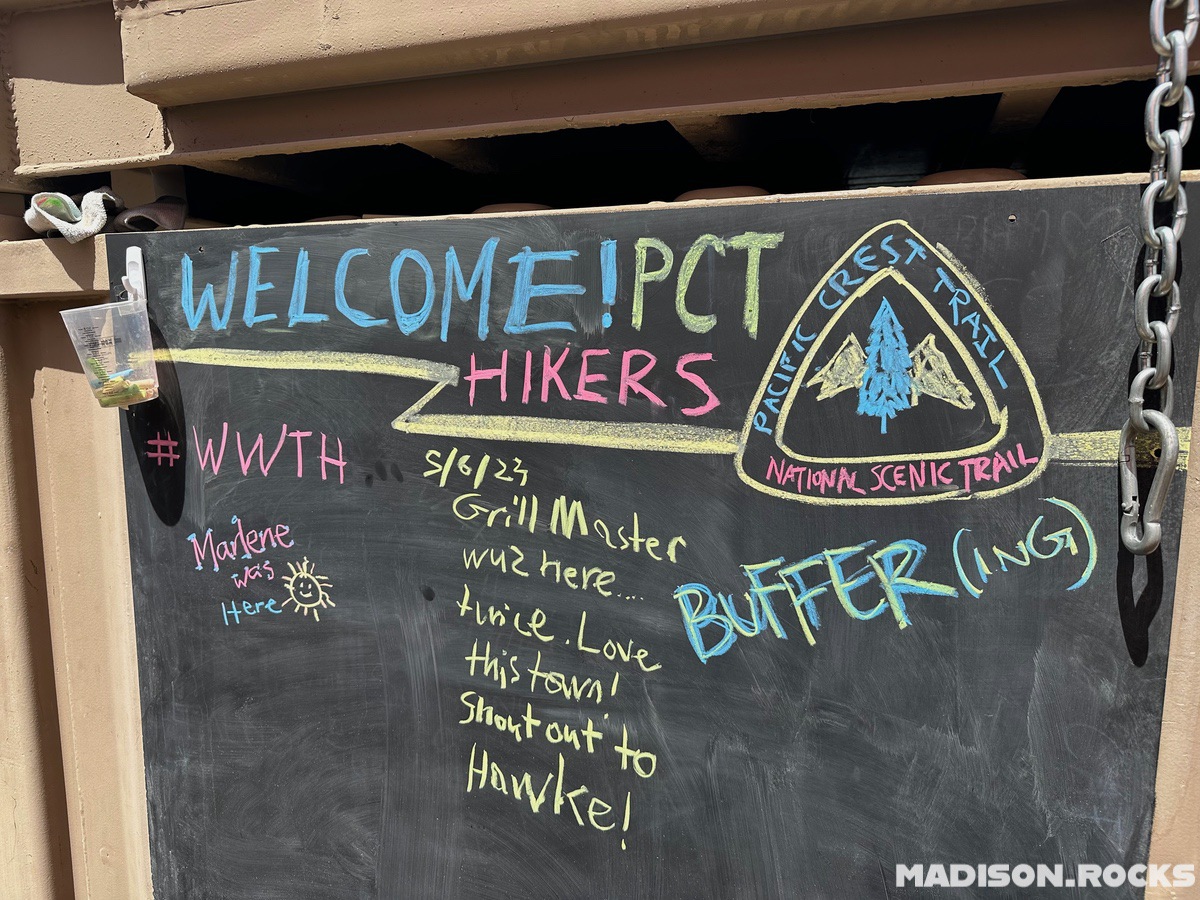 WELCOME! PCT
HIKERS
PACIFIC CREST TRAIL
NATIONAL SCENIC TRAIL
#WWTH...
Marlene
was
Here
5/6/23
Grill Master
wuz here....
twice. Love
this town!
Shout out to
Hawke!
BUFFER(ING)
MADISON.ROCKS